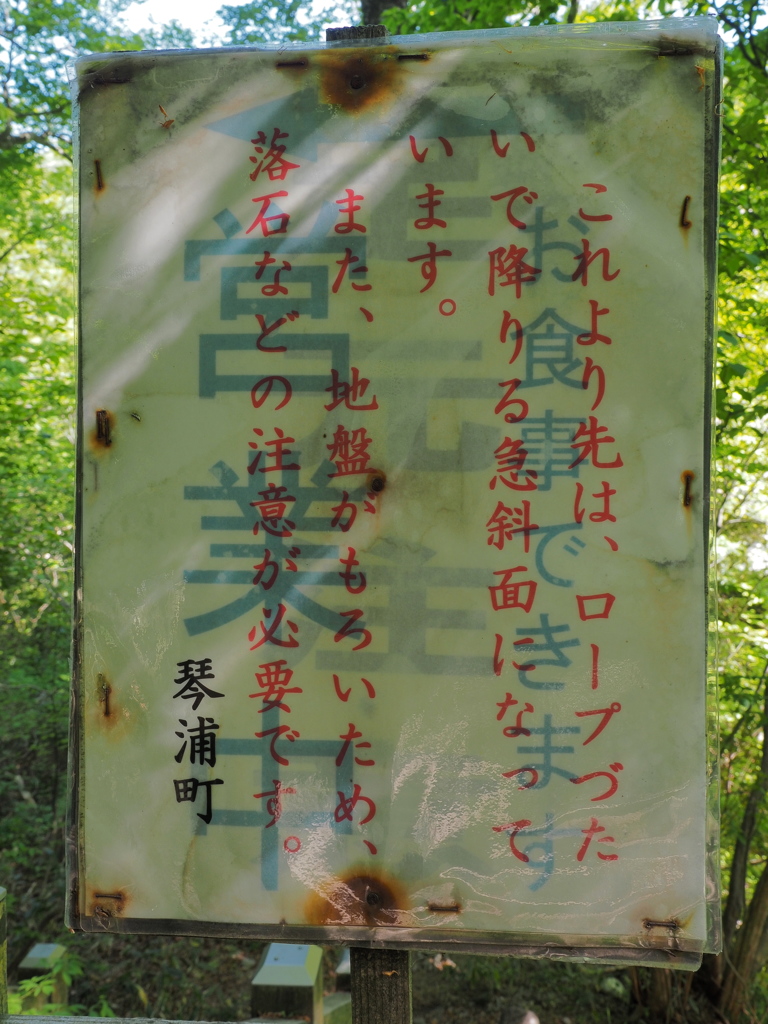 これより先は、ロープづた
いで降りる急斜面になって
います。
また、地盤がもろいため、
落石などの注意が必要です。
琴浦町
お食事できます
営業中